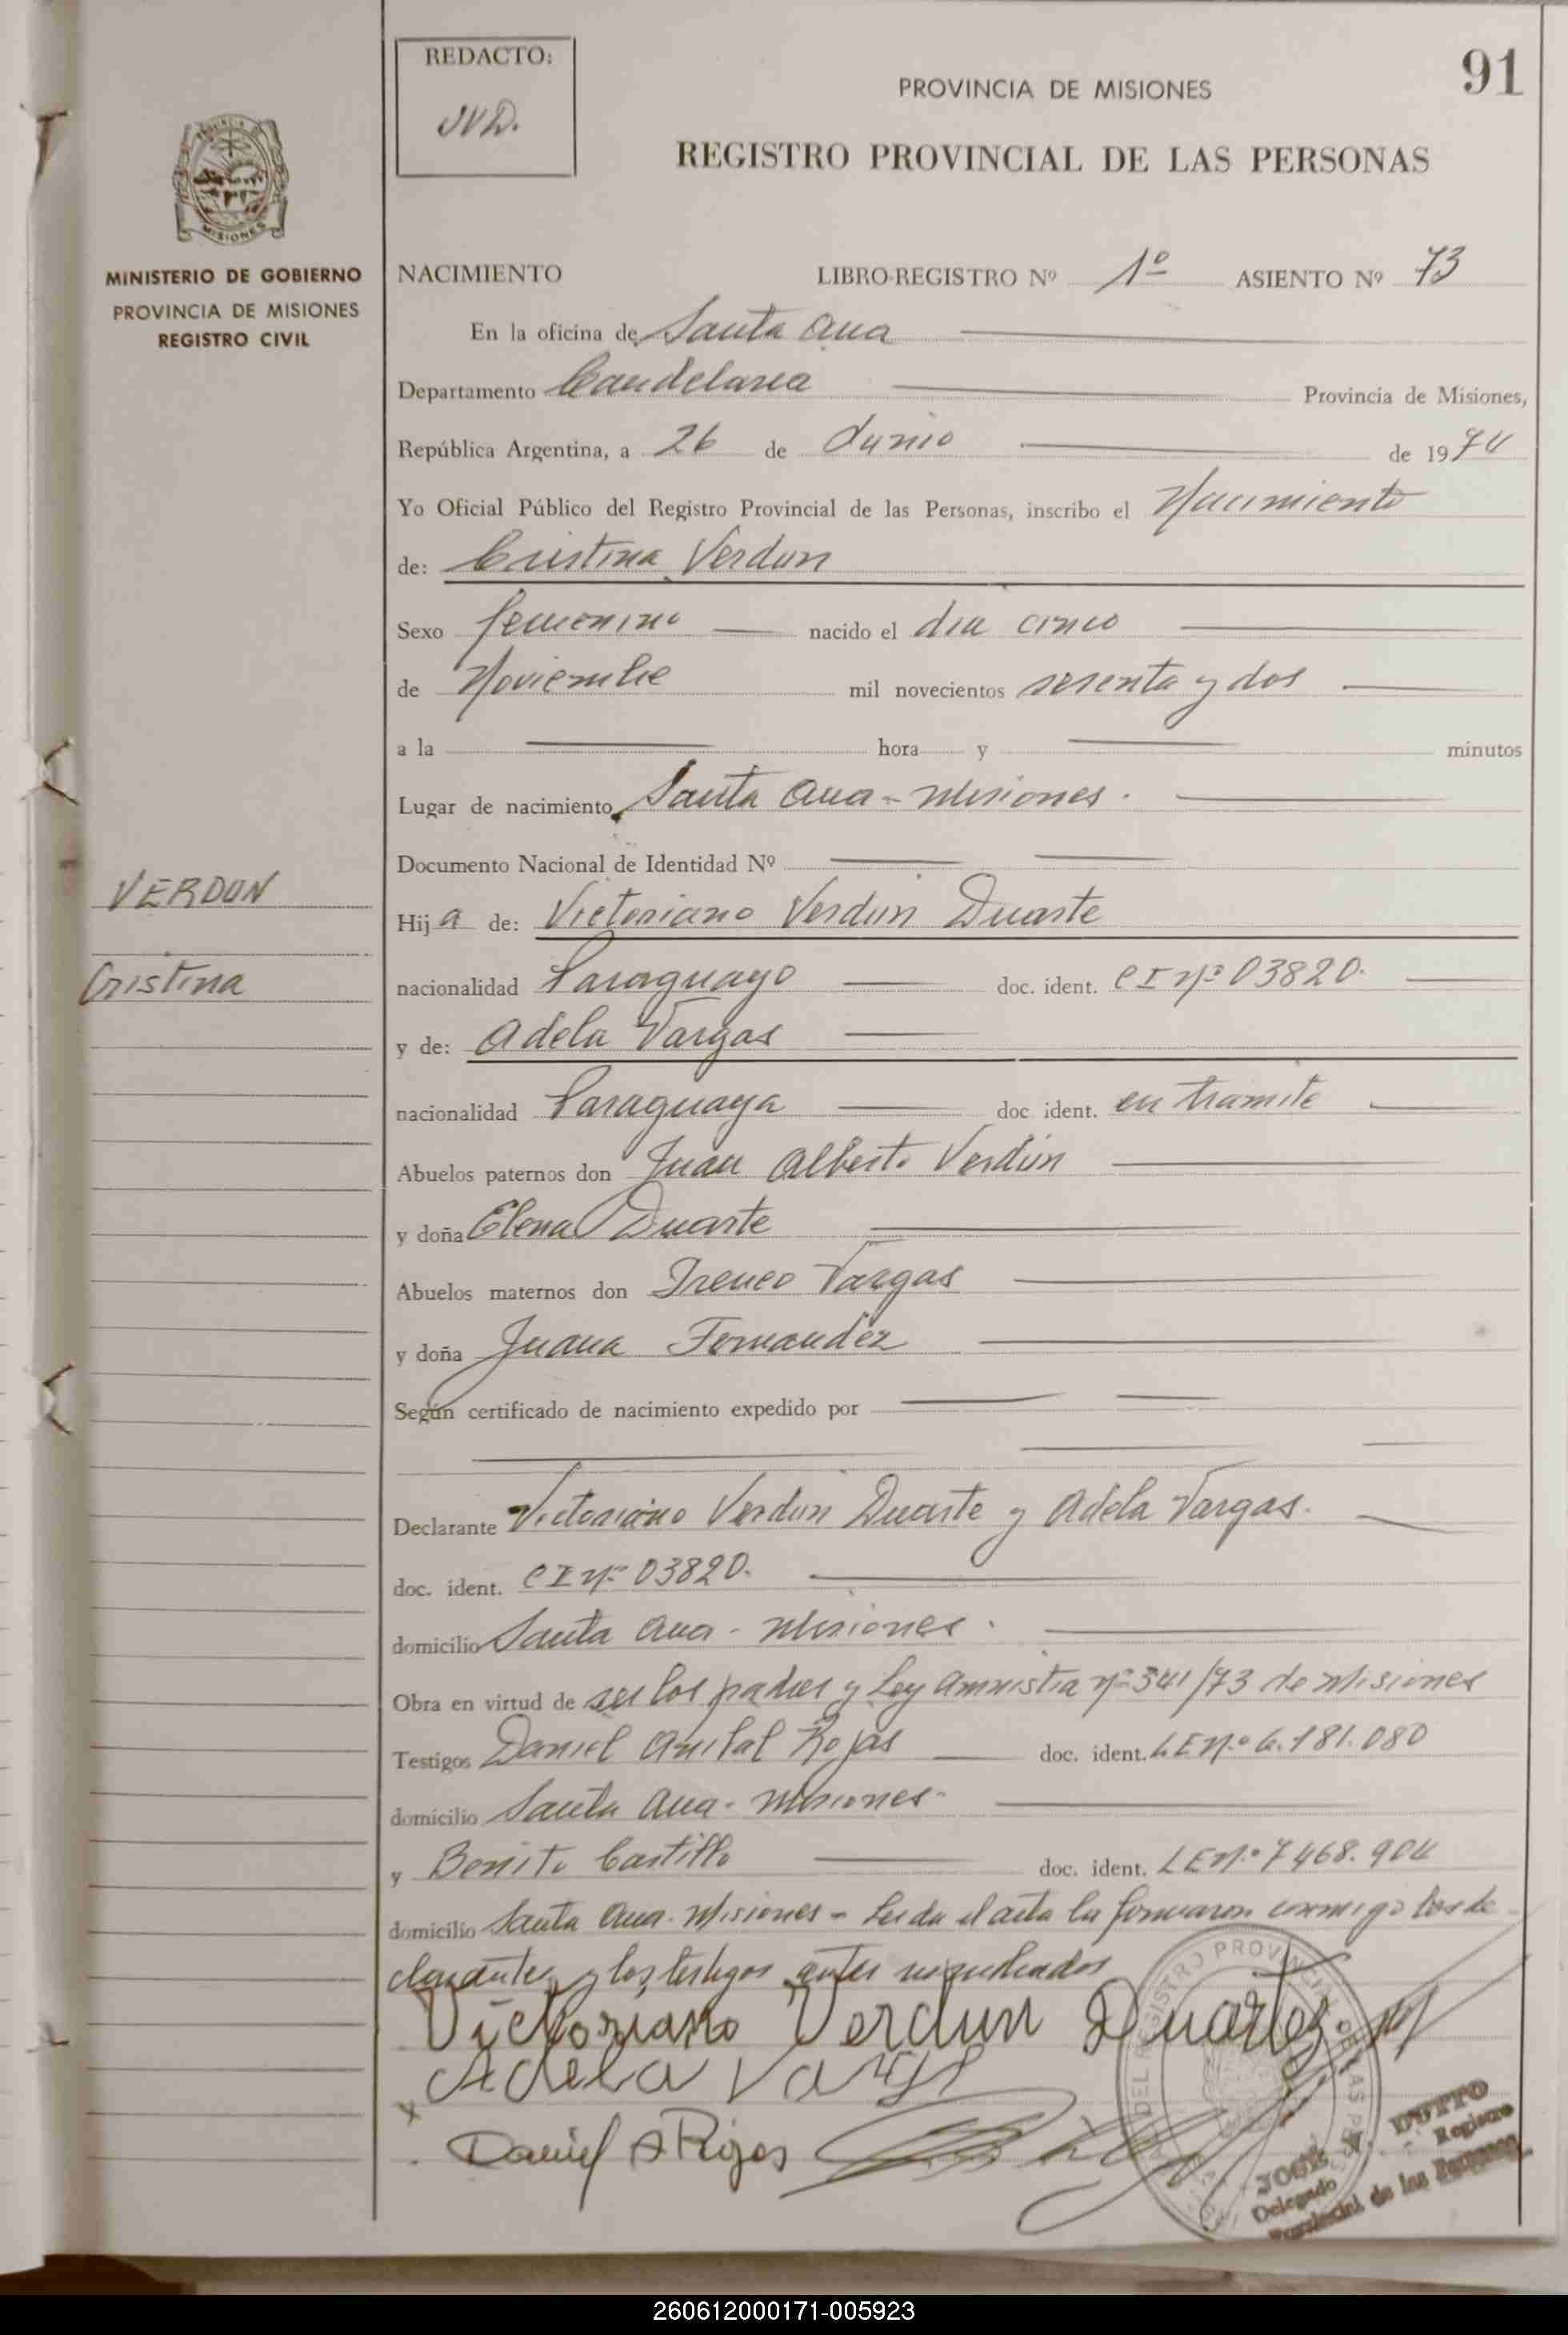 REDACTO:
91
PROVINCIA DE MISIONES
REGISTRO PROVINCIAL DE LAS PERSONAS
MISIONES
MINISTERIO DE GOBIERNO
PROVINCIA DE MISIONES
REGISTRO CIVIL
NACIMIENTO LIBRO-REGISTRO Nº 1º ASIENTO Nº 73
En la oficina de Santa Ana
Departamento Candelaria Provincia de Misiones,
República Argentina, a 26 de Junio de 1974
Yo Oficial Público del Registro Provincial de las Personas, inscribo el Nacimiento
de: Cristina Verdun
Sexo femenino nacido el dia cinco
de Noviembre mil novecientos sesenta y dos
a la hora y minutos
Lugar de nacimiento Santa Ana - Misiones.
Documento Nacional de Identidad Nº
VERDUN
Hija de: Victoriano Verdún Duarte
Cristina
nacionalidad Paraguayo doc. ident. C I Nº 03820.
y de: Adela Vargas
nacionalidad Paraguaya doc ident. en tramite
Abuelos paternos don Juan Alberto Verdún
y doña Elena Duarte
Abuelos maternos don Ireneo Vargas
y doña Juana Fernandez
Según certificado de nacimiento expedido por
Declarante Victoriano Verdun Duarte y Adela Vargas.
doc. ident. C I Nº 03820.
domicilio Santa Ana - Misiones.
Obra en virtud de ser los padres y Ley Amnistia Nº 341/73 de Misiones
Testigos Daniel Anibal Rojas doc. ident. L E Nº 6.181.080
domicilio Santa Ana - Misiones-
y Benito Castillo doc. ident. L E Nº 7468.904
domicilio Santa Ana - Misiones - Leida el acta la firmaron conmigo los de
clarantes y los testigos antes
Victoriano Verdun Duarte
Adela
Daniel A Rojas
JOSE DUTTO
Delegado Registro
Provincial de las Personas
260612000171-005923